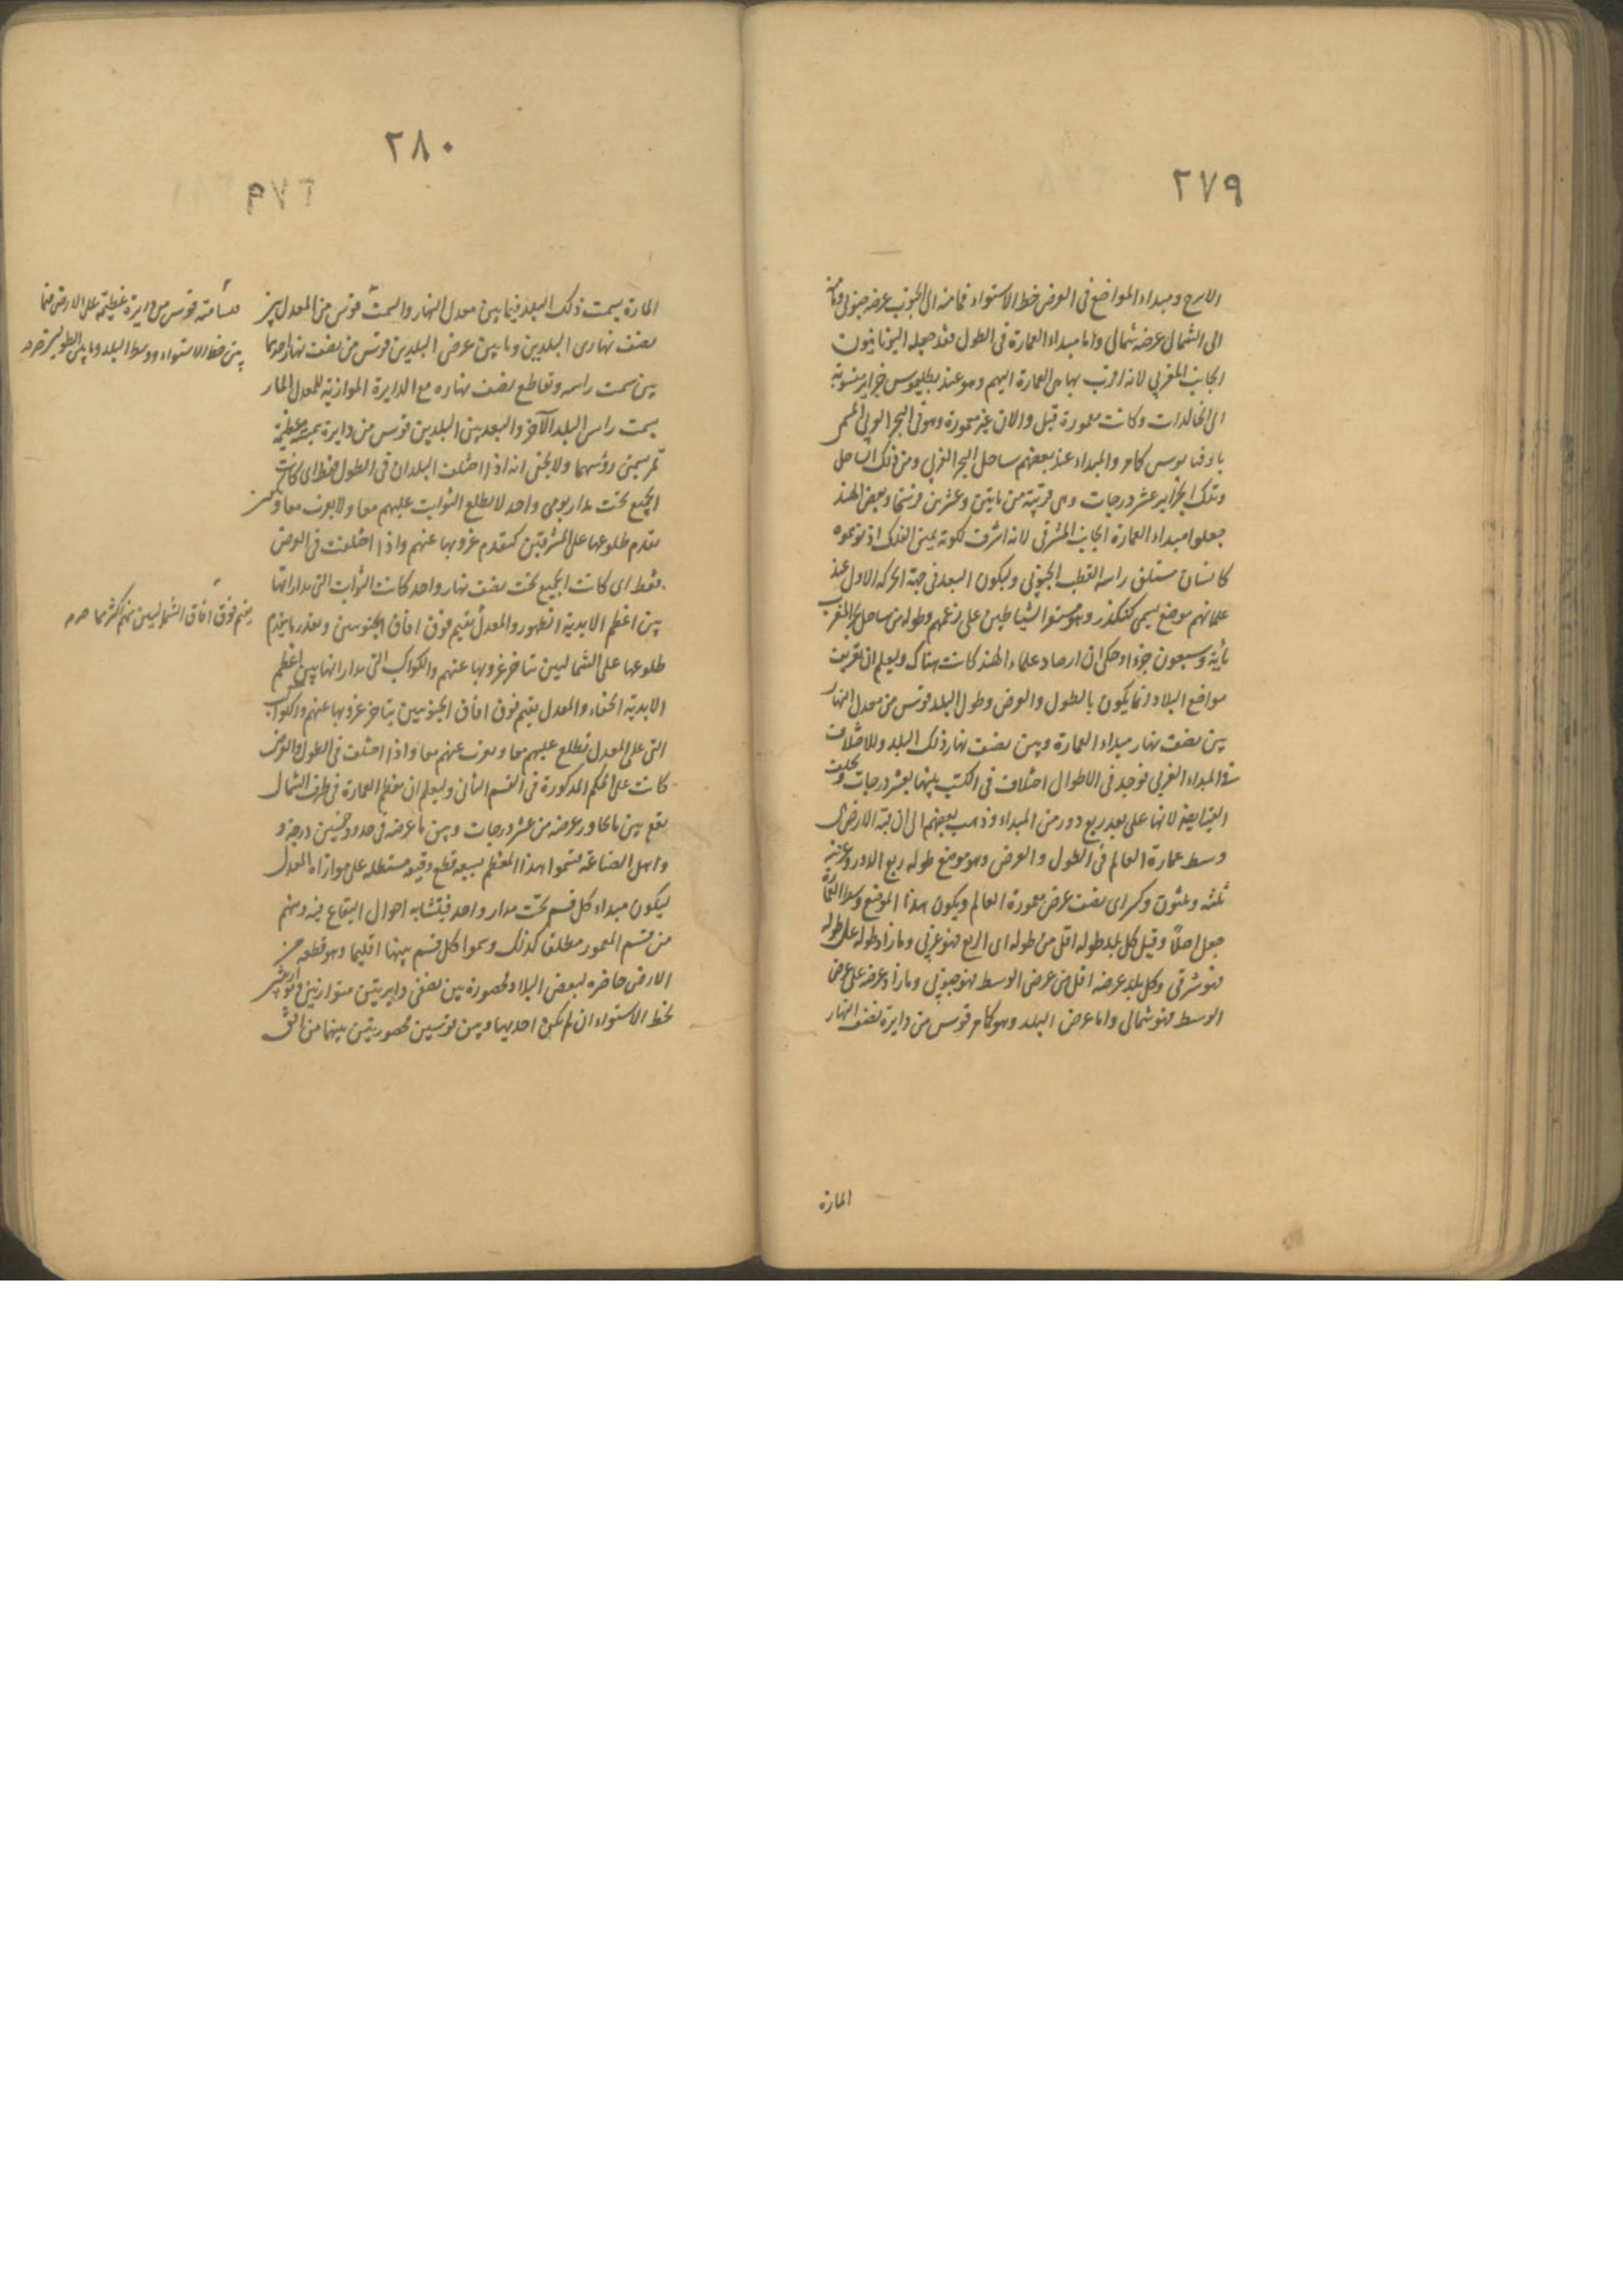 ٢٧٩
الابرج ومبداء المواضع فى العرض خط الاستواء فما منه الى الجنوب عرضه جنوبى وما منه
الى الشمال عرضه شمالى واما مبداء العمارة فى الطول فقد جعله اليونانيون
الجانب المغربى لانه اقرب نهايتى العمارة اليهم وهو عند بطليموس جزاير منسوبة
الى الخالدات وكانت معمورة قبل والان غير معمورة وهو فى البحر الغربى المسمى
باوقيانوس كامر والمبداء عند بعضهم ساحل البحر الغربى ومن ذلك الساحل
وتلك الجزاير عشر درجات وهى قريبة من مايتين وعشرين فرسخا وبعض الهند
جعلوا مبداء العمارة الجانب المشرقى لانه اشرف لكونه يمين الفلك اذ توهموه
كانسان مستلق راسه القطب الجنوبى وليكون البعد فى جهة الحركة الاولى عند
علمائهم موضع يسمى كنكدز وهو مستقر الشياطين على زعمهم وطوله من ساحل بحر المغرب
مأية وسبعون جزءا وحكى ان ارصاد علماء الهند كانت هناك وليعلم ان تعريف
مواضع البلاد انما يكون بالطول والعرض وطول البلد قوس من معدل النهار
بين نصف نهار مبداء العمارة وبين نصف نهار ذلك البلد وللاختلاف
فى المبداء الغربى يوجد فى الاطوال اختلاف فى الكتب بينهما بعشر درجات ويختلف
القبة ايضا لانها على بعد ربع دور من المبداء وذهب بعضهم الى ان قبة الارض هى
وسط عمارة العالم فى الطول والعرض وهو موضع طوله ربع الدور وعرضه
ثلثه وثلثون وكسر اى نصف عرض معمورة العالم ويكون هذا الموضع وسط العمارة
جعل اصلا وقيل كل بلد طوله اقل من طوله اى الربع فهو غربى وما زاد طوله على طوله
فهو شرقى وكل بلد عرضه اقل من عرض الوسط فهو جنوبى وما زاد عرضه على عرض
الوسط فهو شمالى واما عرض البلد وهو كامر قوس من دايرة نصف النهار
المارة
٢٨٠
المارة بسمت ذلك البلد فيما بين معدل النهار والسمت قوس من المعدل بين
نصف نهارى البلدين وما بين عرضى البلدين قوس من نصف نهار احدهما
بين سمت راسه وتقاطع نصف نهاره مع الدايرة الموازية للمعدل المار
بسمت راس البلد الآخر والبعد بين البلدين قوس من دايرة عظيمة
تمر بسمتى رؤسهما ولا يخفى انه اذا اختلف البلدان فى الطول فقط اى كانت
الجميع تحت مدار يومى واحد لا يطلع الثوابت عليهم معا ولا يغرب معا
تقدم طلوعها على المشرقيين كتقدم غروبها عنهم واذا اختلفت فى العرض
فقط اى كانت الجميع تحت نصف نهار واحد كانت الثوابت التى مداراتها
بين اعظم الابدية الظهور والمعدل تقيم فوق افاق الجنوبيين وبقدر ما يتقدم
طلوعها على الشماليين تتاخر غروبها عنهم والكواكب التى مداراتها بين اعظم
الابدية الخفاء والمعدل يقيم فوق افاق الجنوبيين يتاخر غروبها عنهم والكواكب
التى على المعدل تطلع عليهم معا وتغرب عنهم معا واذا اختلفت فى الطول والعرض
كانت على الحكم المذكورة فى القسم الثانى وليعلم ان معظم العمارة فى طرف الشمال
يقع بين ما يجاور عرضه من عشر درجات وبين ما عرضه فى حدود خمسين درجة و
واهل الصناعة قسموا هذا المعظم بسبع قطع دقيقة مستطيلة على موازاة المعدل
ليكون مبداء كل قسم تحت مدار واحد فيتشابه احوال البقاع فيه ومنهم
من قسم المعمور مطلقا كذلك وسموا كل قسم بينها اقليما وهو قطعه من
الارض حاضره لبعض البلاد محصورة بين نصفى دايرتين متوازيتين
لخط الاستواء ان لم يكن احديهما وبين قوسين محصورتين بينهما من
مسامتة قوس من دايرة عظيمة على الارض فيما
بين خط الاستواء ووسط البلد وما بين الطولين
يقيم فوق آفاق الشماليين منهم اكثر مما